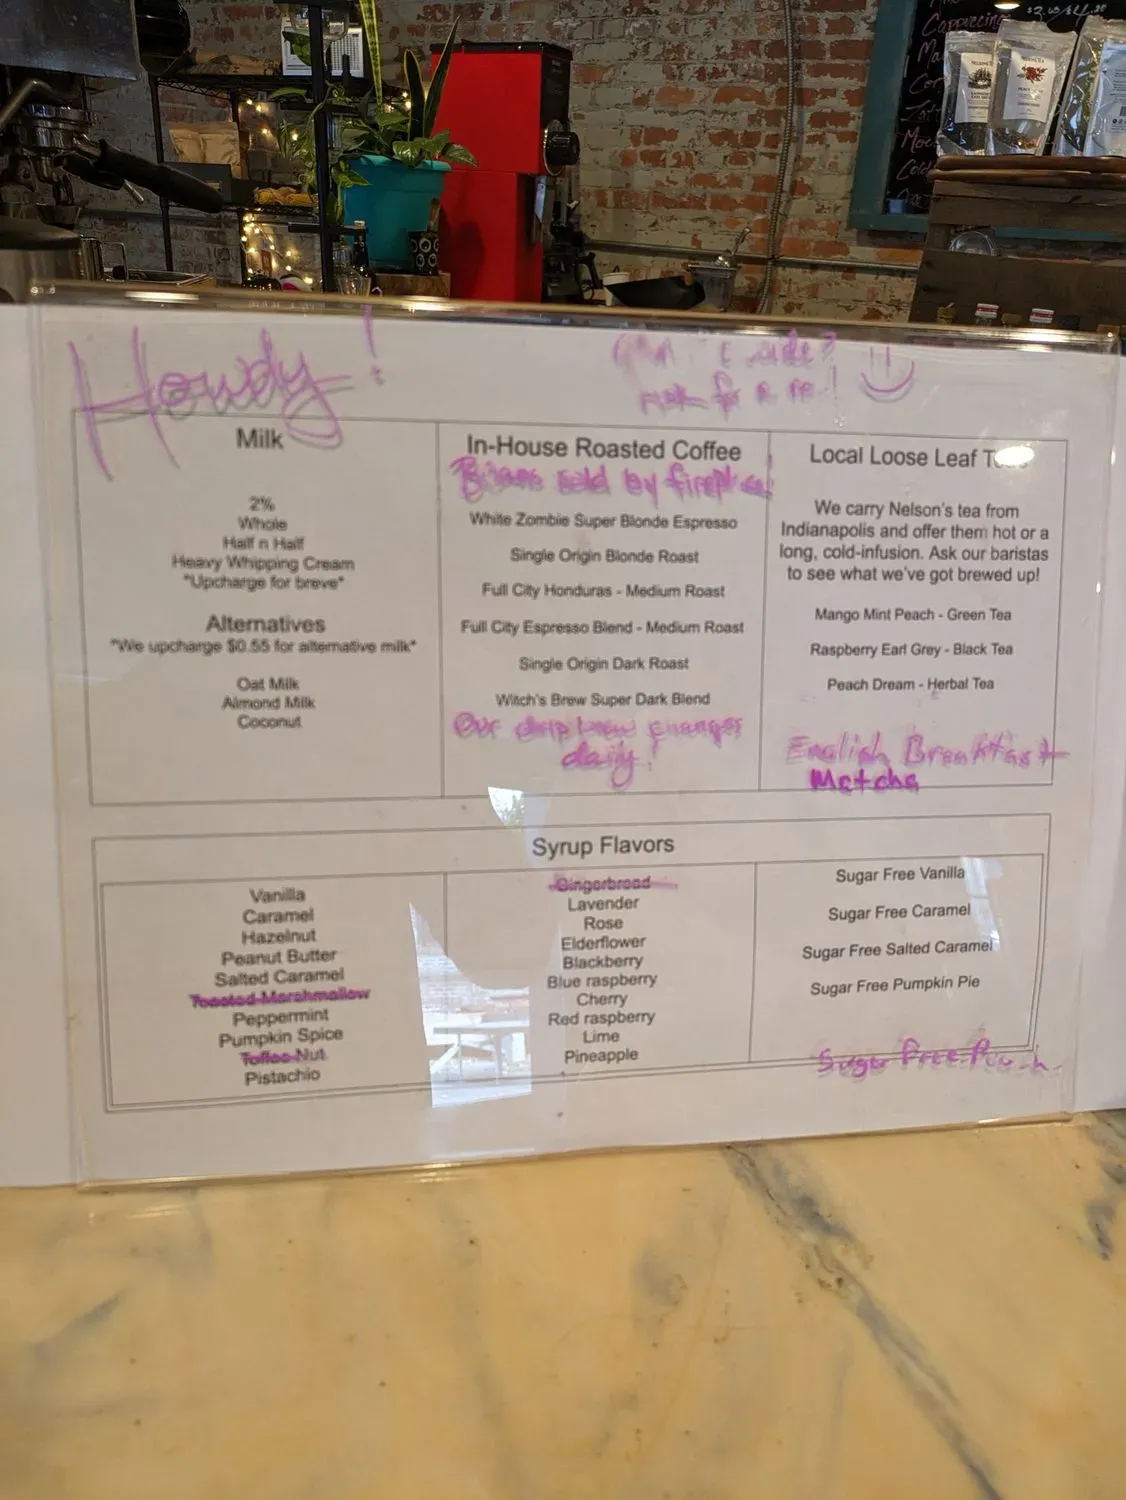 Cappuccino $2.
Howdy!
Milk
2%
Whole
Half n Half
Heavy Whipping Cream
*Upcharge for breve*
Alternatives
*We upcharge $0.55 for alternative milk*
Oat Milk
Almond Milk
Coconut
In-House Roasted Coffee
sold by fireplace!
White Zombie Super Blonde Espresso
Single Origin Blonde Roast
Full City Honduras - Medium Roast
Full City Espresso Blend - Medium Roast
Single Origin Dark Roast
Witch's Brew Super Dark Blend
Our drip brew changes
daily!
Local Loose Leaf
We carry Nelson's tea from
Indianapolis and offer them hot or a
long, cold-infusion. Ask our baristas
to see what we've got brewed up!
Mango Mint Peach - Green Tea
Raspberry Earl Grey - Black Tea
Peach Dream - Herbal Tea
English Breakfast
Matcha
Syrup Flavors
Vanilla
Caramel
Hazelnut
Peanut Butter
Salted Caramel
Toasted Marshmallow
Peppermint
Pumpkin Spice
Toffee Nut
Pistachio
Gingerbread
Lavender
Rose
Elderflower
Blackberry
Blue raspberry
Cherry
Red raspberry
Lime
Pineapple
Sugar Free Vanilla
Sugar Free Caramel
Sugar Free Salted Caramel
Sugar Free Pumpkin Pie
Sugar Free